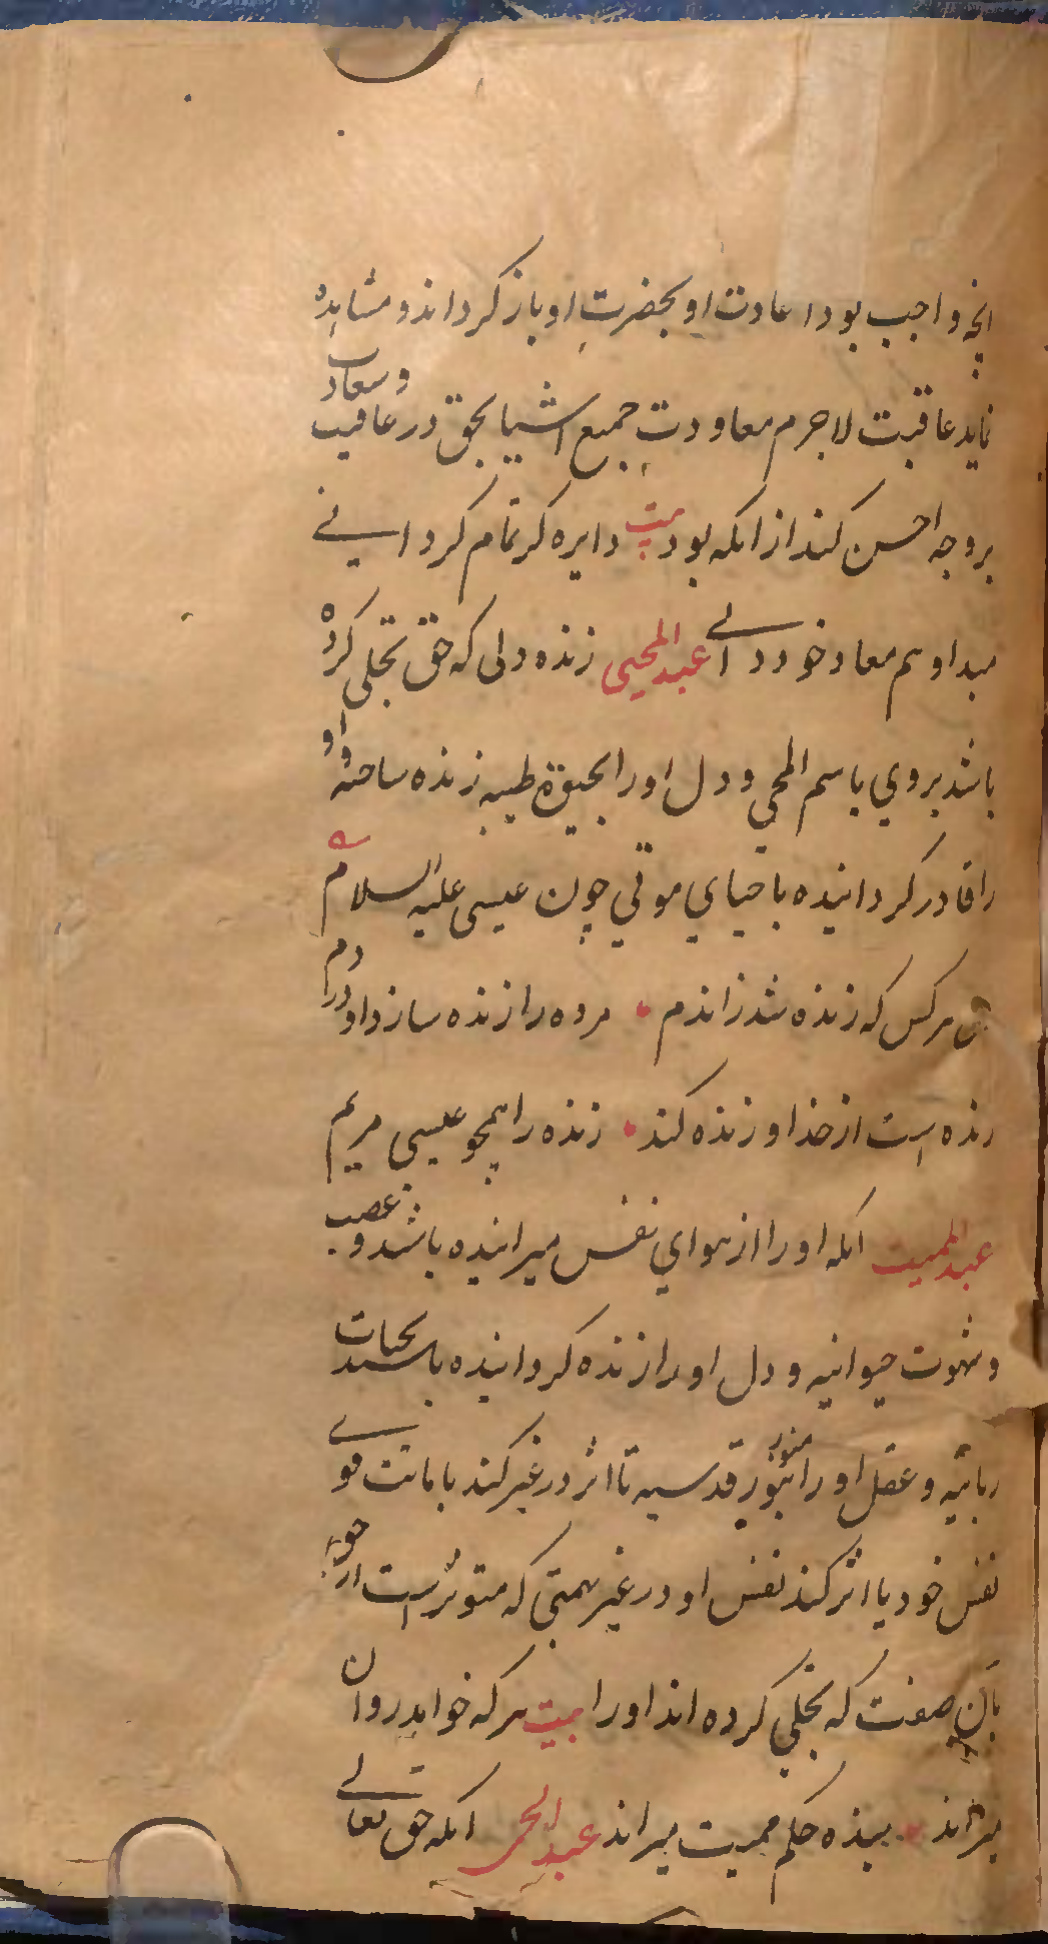 انچه واجب بود اعادت او بحضرت او باز کرداند و مشاهده
نماید عاقبت لاجرم معاودت جمیع اشیا بحق در عاقبت و سعادت
بر وجه احسن کند از انکه بود بیت دایره کر تمام کردانی
مبدا و هم معاد خود دانی عبد المحیی زنده دلی که حق تجلی کرده
باشد بروی باسم المحیی و دل او را بحیوة طیبه زنده ساخته و او
را قادر کردانیده باحیای موتی چون عیسی علیه السلام
هر کس که زنده شد زاندم مرده را زنده سازد او در دم
زنده است از خدا و زنده کند زنده را همچو عیسی مریم
عبد الممیت انکه او را از هوای نفس میرانیده باشد و غضب
و شهوت حیوانیه و دل او را زنده کردانیده باشد بحیات
ربانیه و عقل او را منور بنور قدسیه تا اثر در غیر کند باماتت قوی
نفس خود یا اثر کند نفس او در غیر بهمتی که متوثر است از حق
بان صفت که تجلی کرده اند او را بیت هر که خواهد روان
میراند بنده حکم ممیت میراند عبد الحی انکه حق تعالی